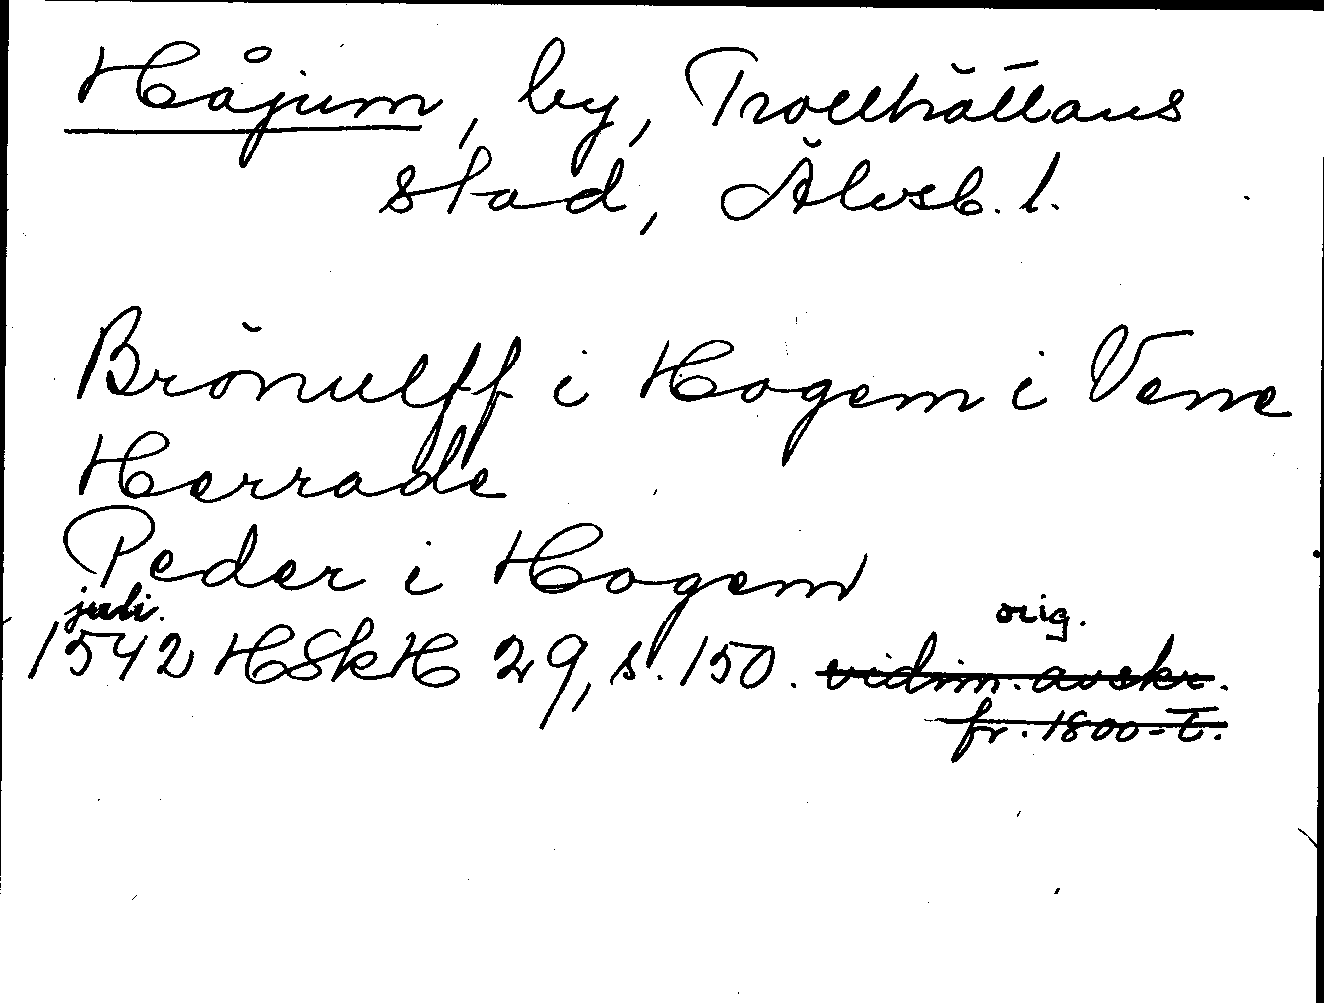 Håjum, by, Trollhättans
stad, Älvsb. l.
Brönulff i Hogem i Vene
Herrade
Peder i Hogem
juli.
orig.
1542 HSkH 29, s. 150. vidim. avskr.
fr. 1800-t.